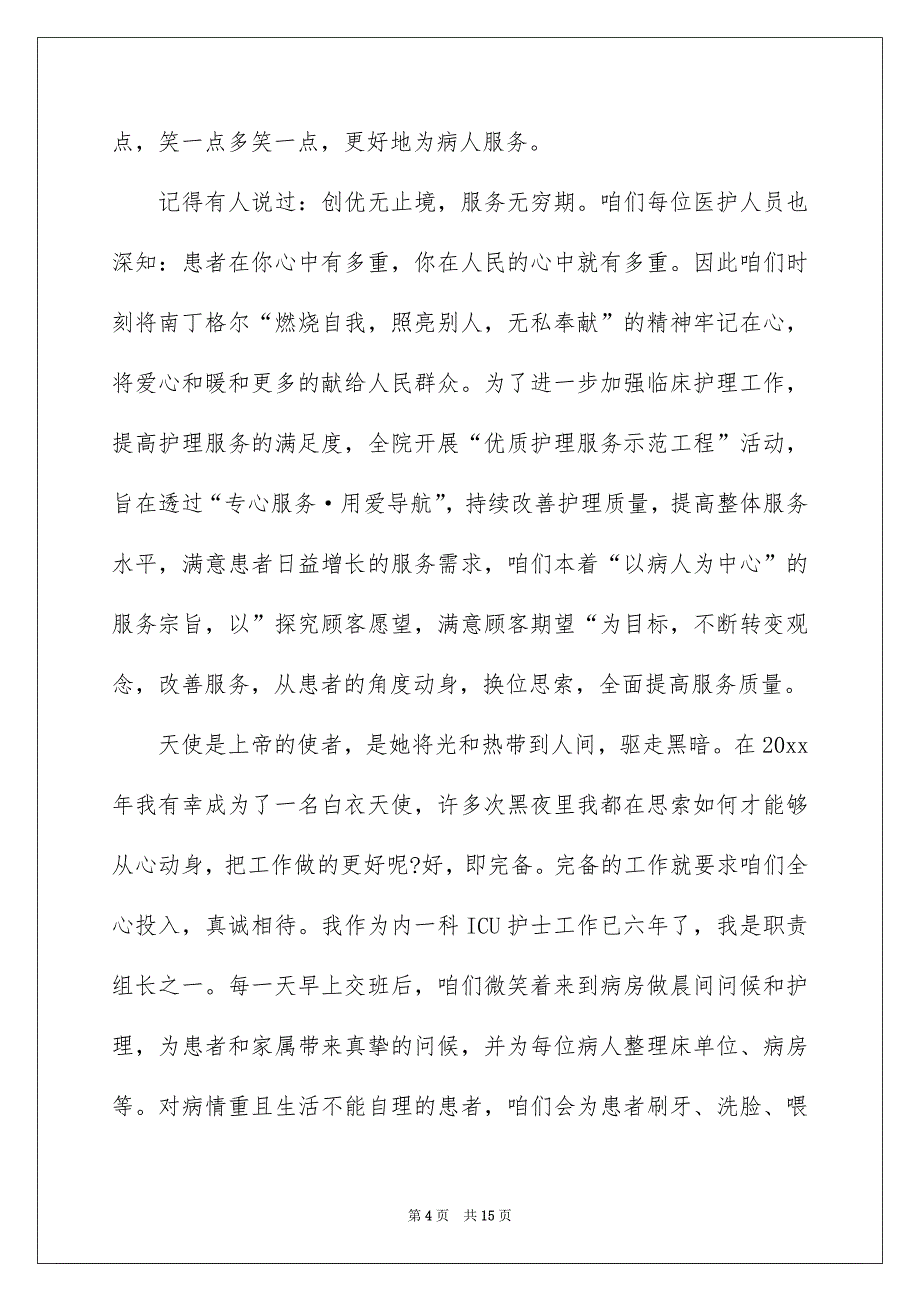 点，笑一点多笑一点，更好地为病人服务。
记得有人说过：创优无止境，服务无穷期。咱们每位医护人员也
深知：患者在你心中有多重，你在人民的心中就有多重。因此咱们时
刻将南丁格尔“燃烧自我，照亮别人，无私奉献”的精神牢记在心，
将爱心和暖和更多的献给人民群众。为了进一步加强临床护理工作，
提高护理服务的满足度，全院开展“优质护理服务示范工程”活动，
旨在透过“专心服务·用爱导航”，持续改善护理质量，提高整体服务
水平，满意患者日益增长的服务需求，咱们本着“以病人为中心”的
服务宗旨，以”探究顾客愿望，满意顾客期望“为目标，不断转变观
念，改善服务，从患者的角度动身，换位思索，全面提高服务质量。
天使是上帝的使者，是她将光和热带到人间，驱走黑暗。在 20xx
年我有幸成为了一名白衣天使，许多次黑夜里我都在思索如何才能够
从心动身，把工作做的更好呢?好，即完备。完备的工作就要求咱们全
心投入，真诚相待。我作为内一科 ICU 护士工作已六年了，我是职责
组长之一。每一天早上交班后，咱们微笑着来到病房做晨间问候和护
理，为患者和家属带来真挚的问候，并为每位病人整理床单位、病房
等。对病情重且生活不能自理的患者，咱们会为患者刷牙、洗脸、喂
第 4 页 共 15 页